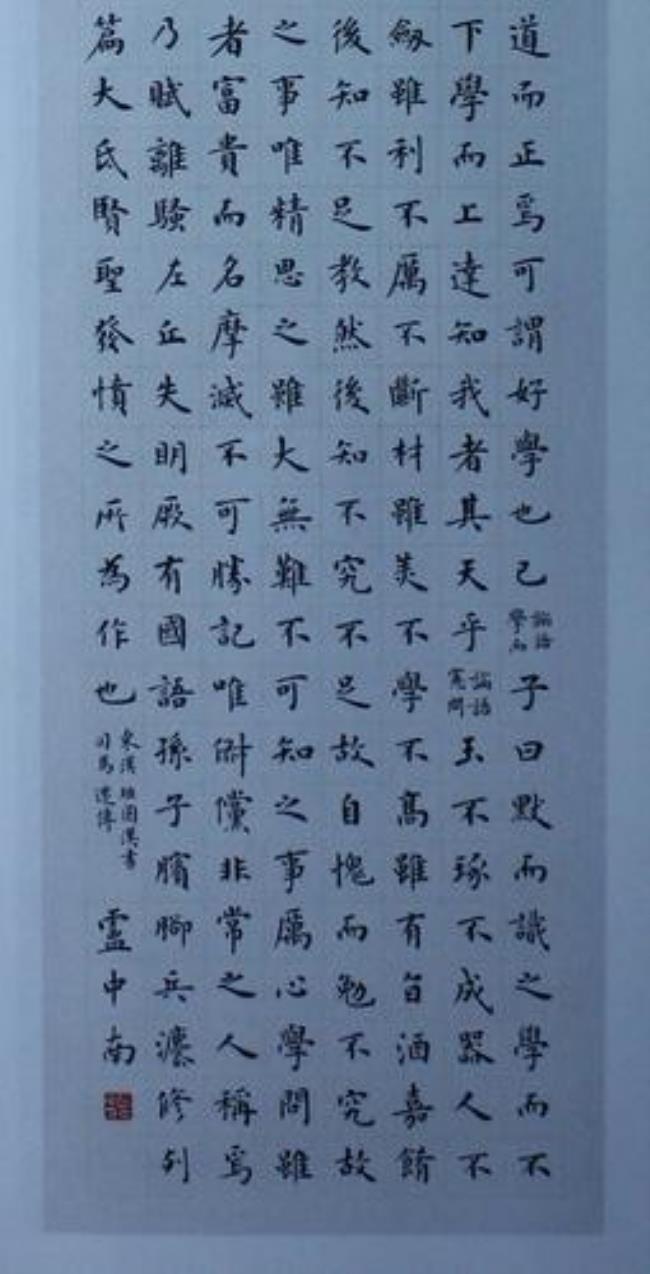 道而正焉可謂好學也已論語學而子曰默而識之學而不
下學而上達知我者其天乎論語憲問玉不琢不成器人不
劔雖利不厲不斷材雖美不學不高雖有旨酒嘉餚
後知不足教然後知不究不足故自愧而勉不究故
之事唯精思之雖大無難不可知之事厲心學問雖
者富貴而名摩滅不可勝記唯俶儻非常之人稱焉
乃賦離騷左丘失明厥有國語孫子臏腳兵灋修列
篇大氐賢聖發憤之所為作也東漢班固漢書司馬遷傳 中南